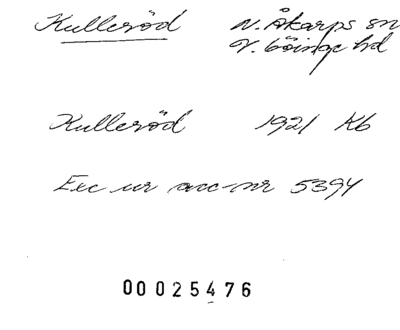 Kulleröd N. Åkarps sn
V. Göinge hd
Kulleröd 1921 Kb
Exc ur acc-nr 5394
00025476